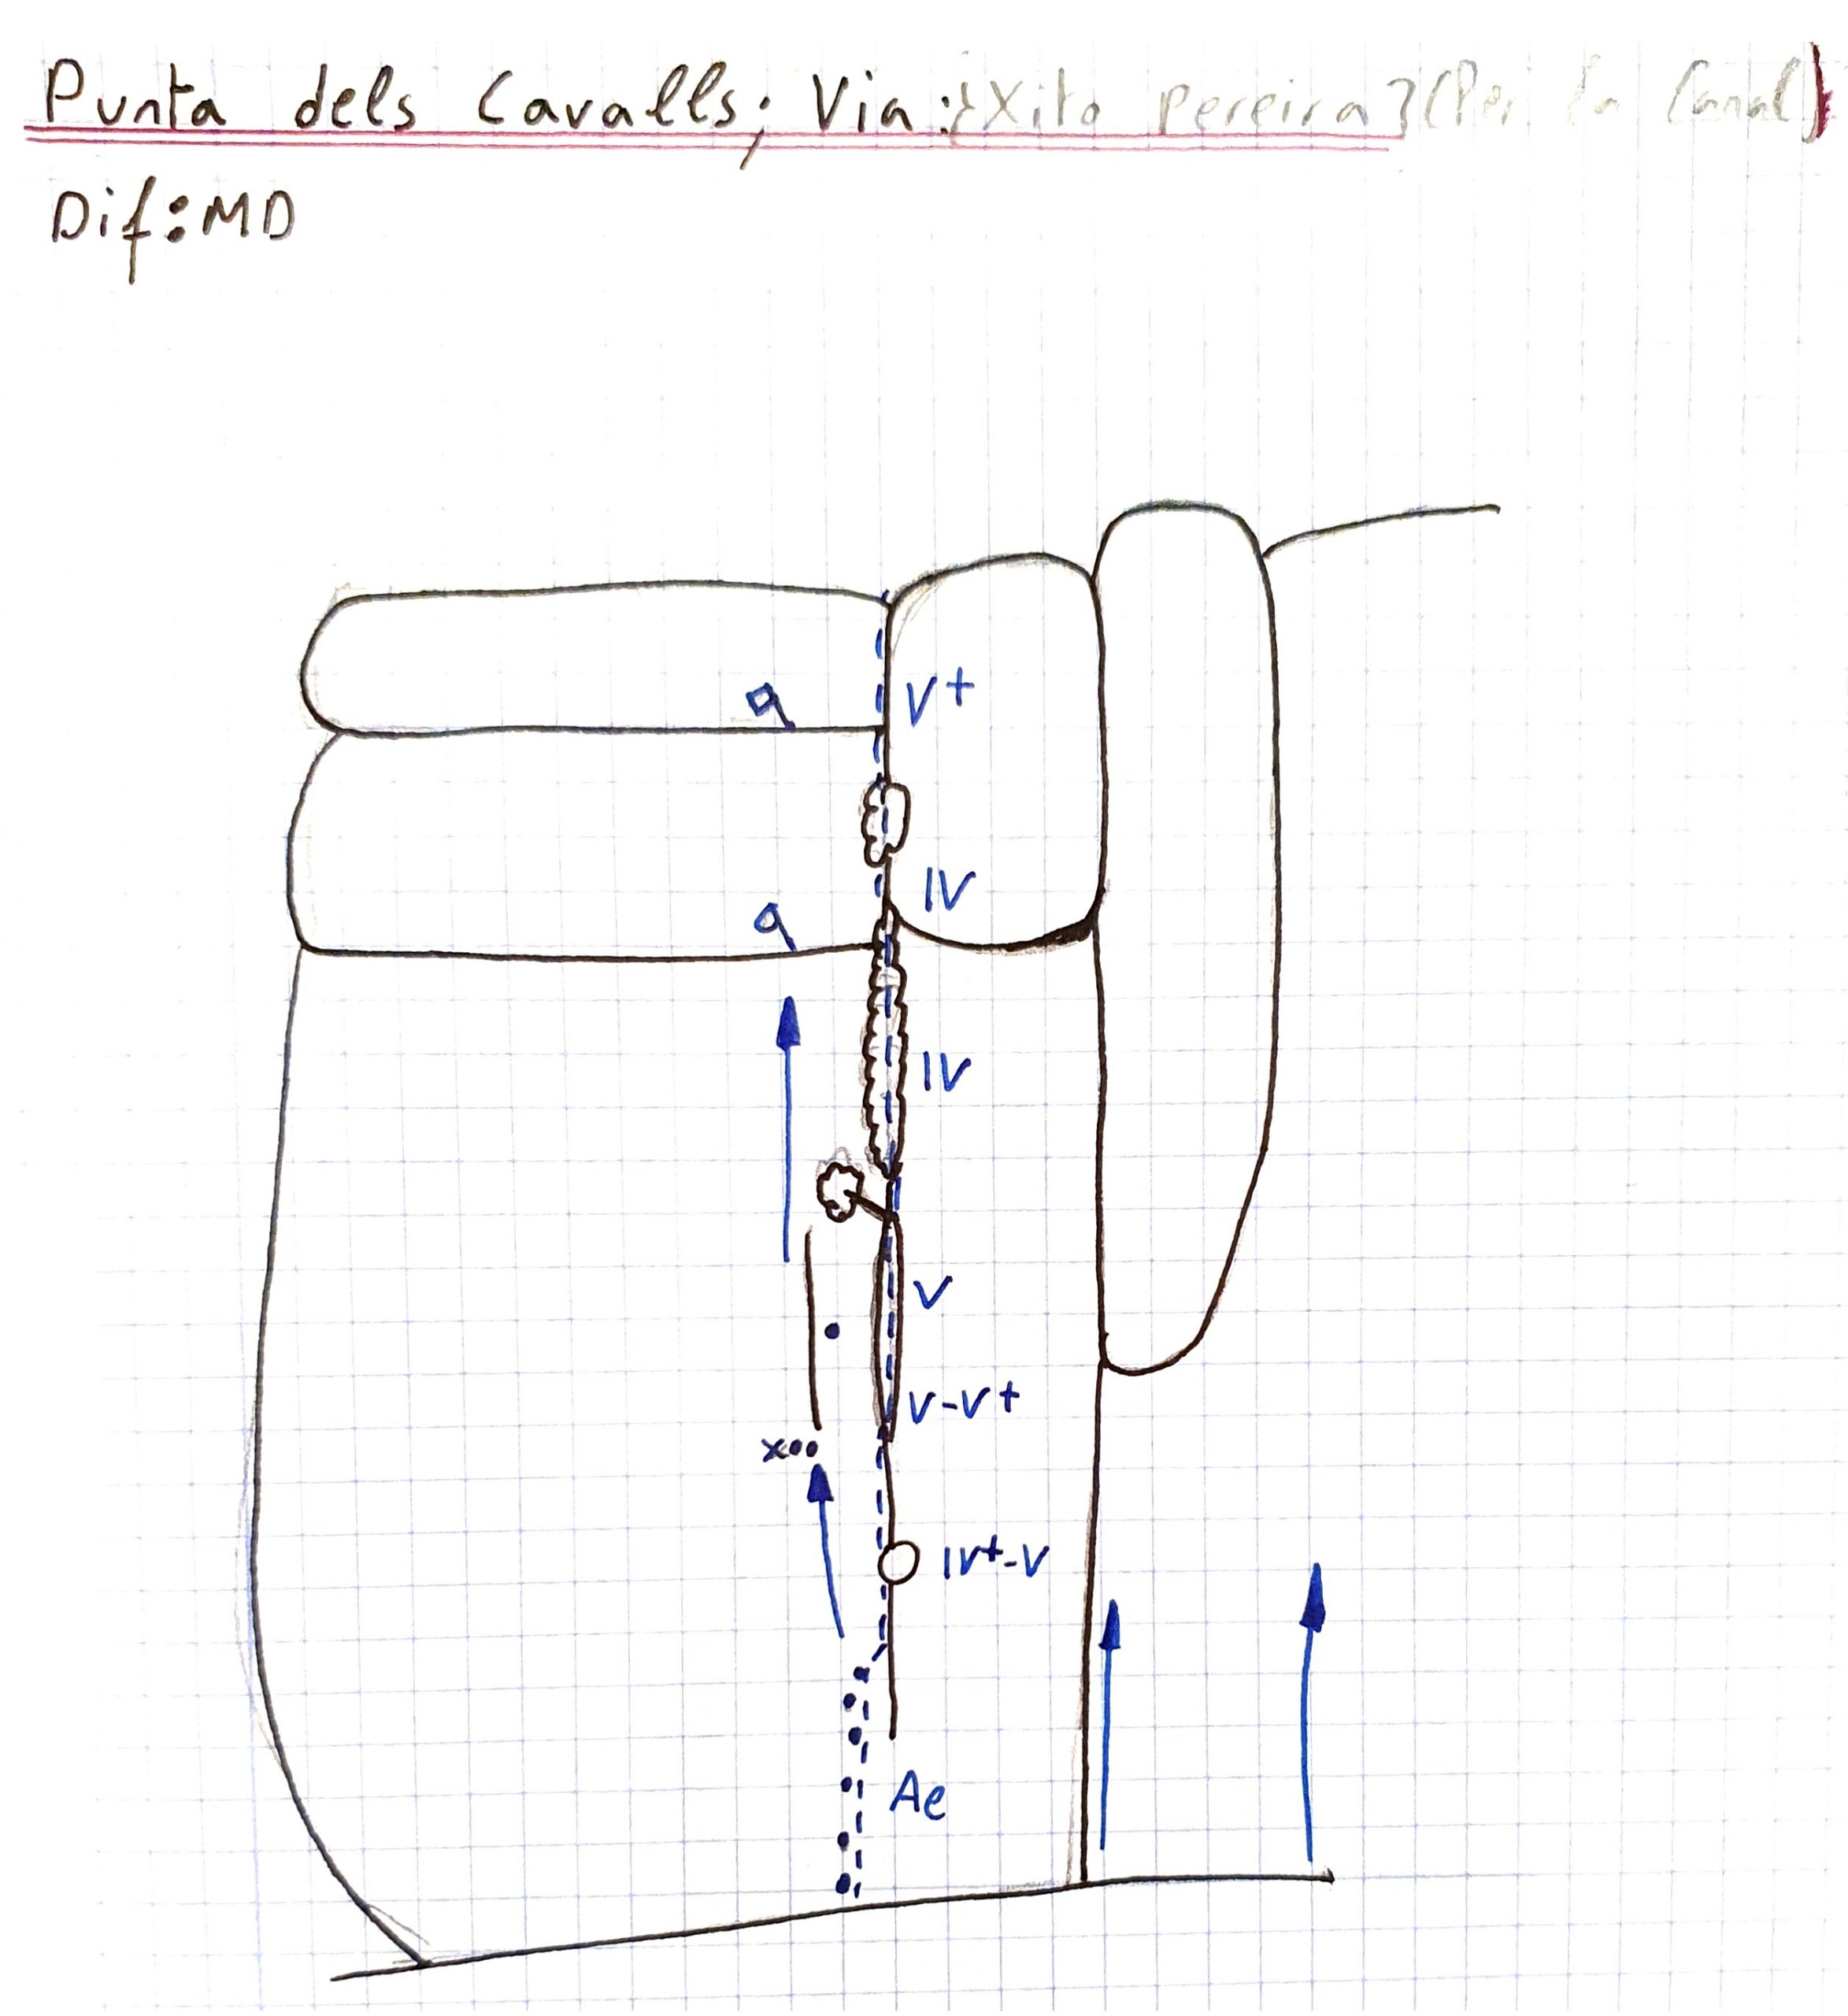 Punta dels Cavalls; Via: {Xito Pereira} (Per la Canal)
Dif: MD
V+
IV
IV
V
V-V+
xoo
IV+-V
Ae